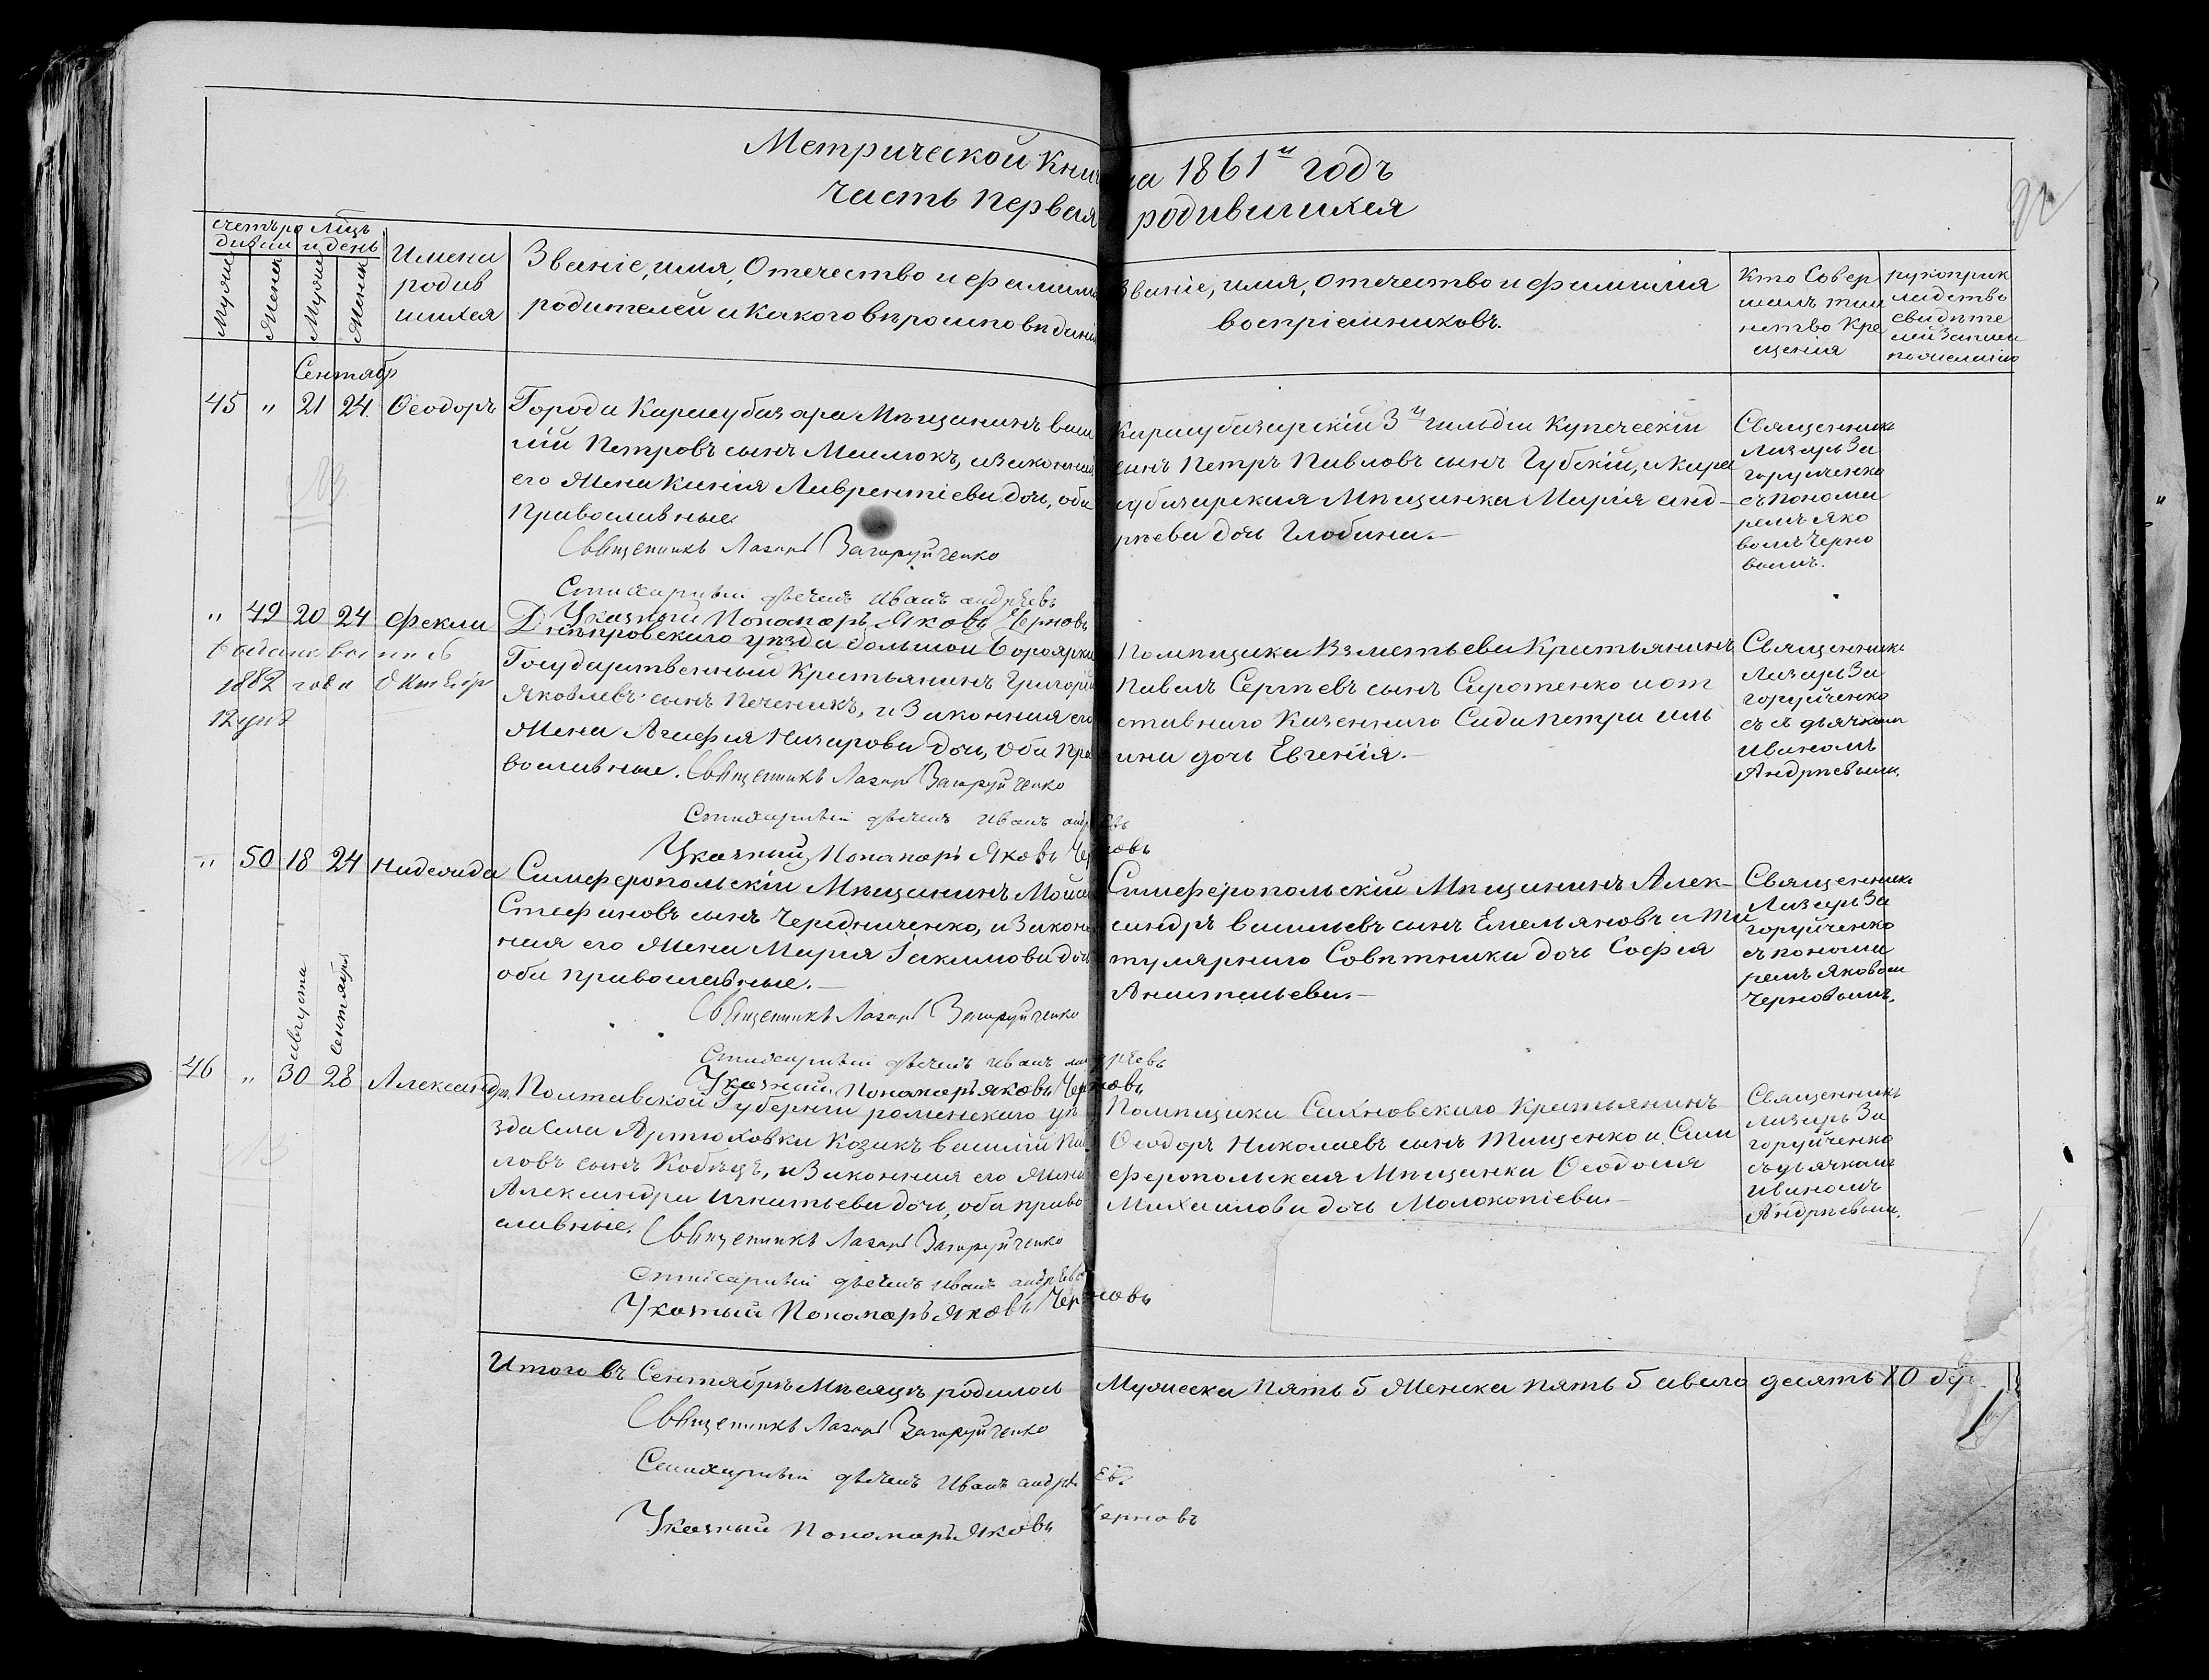 Метрической Книги на 1861й годъ
Часть первая родившихся
счетъ ро дившi
Мца и день
Мужс
Женск
Мужс
Женск
Имена
родив
шихся
Званіе, имя, Отечество и фамилiя
родителей и какого вѣроисповѣданiя
Званіе, имя, отечество и фамилія
воспріемниковъ.
Кто Совер
шалъ таи
нство Кре
щенія
рукоприк
ладство
свидѣте
лей записи
по желанію
Сентябр
45 " 21 24 Ѳеодоръ
Города Карасубазара Мѣщанинъ Васи
лій Петровъ сынъ Маслюкъ, и законная
его Жена Ксенія Лаврентіева дочь, оба
Православные.
Священникъ Лазарь Загоруйченко
Стихарный дьячекъ Иванъ Андреевъ
Указный Пономарь Яковъ Черновъ
Карасубазарскій 3й гильдіи Купеческій
сынъ Петръ Павловъ сынъ Губскій, и Кара
субазарская Мѣщанка Марія Анд-
рѣева дочь Глобина.-
Священникъ
Лазарь За
горуйченко
съ понома
ремъ Яко
вомъ Черно
вымъ.
" 49 20 24 Фекла
1882 года Октября
12 дня
Днѣпровскаго уѣзда большой
Государственный Крестьянинъ Григорій
Яковлевъ сынъ Печеникъ, и Законная его
Жена Агафія Назарова дочь, оба Пра
вославные. Священникъ Лазарь Загоруйченко
Стихарный дьячекъ Иванъ Андреевъ
Указный Пономарь Яковъ Черновъ
Помѣщика Крестьянинъ
Павелъ Сергѣевъ сынъ Сиротенко и от
ставнаго Казеннаго Сада Петра Иль
ина дочь Евгенія.-
Священникъ
Лазарь За
горуйченко
съ дьячкомъ
Иваномъ
Андрѣевымъ.
" 50 18 24 Надежда
Симферопольскій Мѣщанинъ Мойсей
Стефановъ сынъ Чередниченко, и Закон
ная его Жена Марія Іакимова дочь
оба православные.-
Священникъ Лазарь Загоруйченко
Стихарный дьячекъ Иванъ Андреевъ
Указный Пономарь Яковъ Черновъ
Симферопольскій Мѣщанинъ Алек-
сандръ Васильевъ сынъ Емельяновъ и Ти
тулярнаго Совѣтника дочь Софія
Анатольева.-
Священникъ
Лазарь За
горуйченко
съ понома
ремъ Яковом
Черновымъ.
августа
сентября
46 " 30 28 Александръ
Полтавской Губерніи роменскаго уѣ
зда Села Артюховки Козакъ Василій Пав
ловъ сынъ Кобецъ, и Законная его Жена
Александра Игнатьева дочь, оба право
славные. Священникъ Лазарь Загоруйченко
Стихарный дьячекъ Иванъ Андреевъ
Указный Пономарь Яковъ Черновъ
Помѣщика Сахновскаго Крестьянинъ
Ѳеодоръ Николаевъ сынъ Тищенко и Сим
феропольская Мѣщанка Ѳеодосія
Михаилова дочь Молокопіева.-
Священникъ
Лазарь За
горуйченко
съ дьячкомъ
Иваномъ
Андрѣевым.
Итого въ Сентябрѣ Мѣсяцѣ родилось Мужеска пять 5 Женска пять 5 а всего десять 10 ду
Священникъ Лазарь Загоруйченко
Стихарный дьячекъ Иванъ Андреевъ
Указный Пономарь Яковъ Черновъ